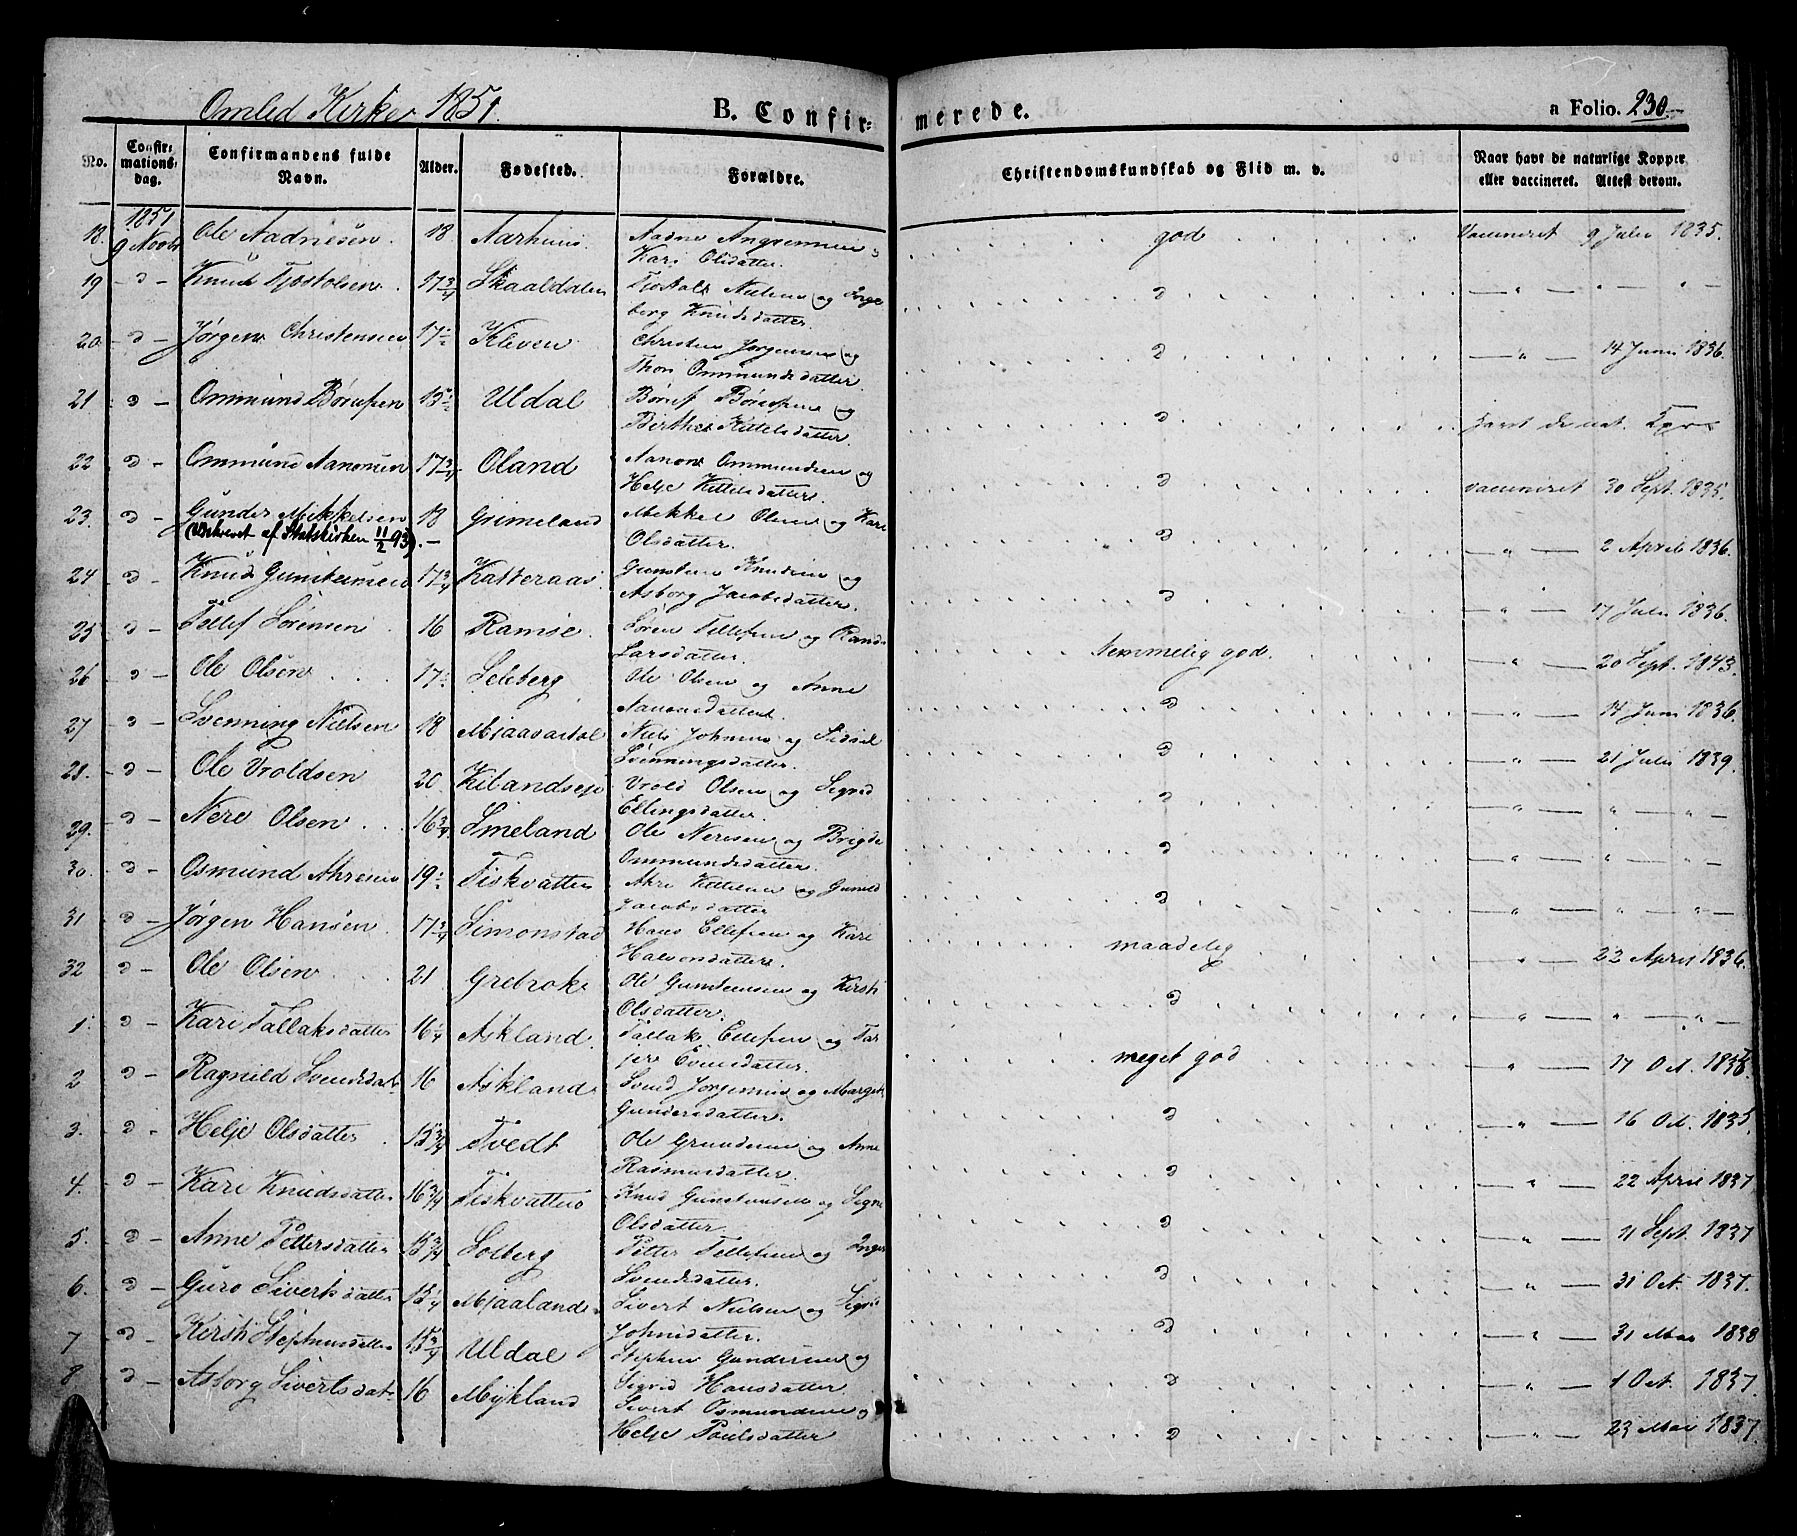 Omlid Kirke 1851. B. Confirmerede. a Folio. 230.
No. Confirmationsdag. Confirmandens fulde Navn. Alder. Fødested. Forældre. Christendomskundskab og Flid m. v. Naar havt de naturlige Kopper eller vaccineret. Attest derom.
18. 1851 9 Novbr Ole Aadnesen. 18. Aarhuus Aadne
Kari Olsdatter. god Vaccineret 9 Julii 1835.
19 d Knud Tjøstolsen 17 3/4 Skaaldalen Tjøstolv Nielsen og Inge
berg Knudsdatter. d — " — " —
20. d Jørgen Christensen 17 Kleven Christen Jørgensen og
Thon Ommundsdatter. d — " — 14 Juni 1836.
21 d Ommund Børufsen 15 Uldal Børuf Børufsen og
Berthe Kittelsdatter. d havt de nat.
22 d Ommund Aanonsen 17 3/4 Oland Aanon Ommundsen og
Helje Kittelsdatter. d vaccineret 30 Sept. 1835.
23. d Gunder Mikkelsen 18 Grimeland Mikkel Olsen og Kari
(Udtraadt af Statskirken 11/2 93). Olsdatter. d — " — 2 April 1836.
24 d Knud Gunstensen 17 3/4 Katteraas Gunsten Knudsen og
Asborg Jacobsdatter. d — " — 17 Julii 1836.
25 d Tellef Sørensen 16 Ramse. Søren Tellefsen og Randi
Larsdatter. Nemmelig god. — " — 20 Sept. 1843.
26 d Ole Olsen 17 Seleberg Ole Olsen og Anne
Aanonsdatter. d — " — 14 Juni 1836.
27 d Svenning Nielsen 18 Mjaavasdal Niels Johnsen og Sidsel
Svenningsdatter. d — " — 21 Julii 1839.
28. d Ole Vroldsen 20 Kilandseje Vrold Olsen og Segred
Ellingsdatter. d — " — " —
29. d Nere Olsen 16 3/4 Smeland Ole Neresen og Brigde
Ommundsdatter. d — " — " —
30. d Osmund Ahresen 19 Fiskvatten Ahre Kittelsen og Gunild
Jacobsdatter d — " — " —
31 d Jørgen Hansen 17 3/4 Simonstad Hans Ellefsen og Kari
Halvorsdatter. maadelig — " — 22 April 1836.
32 d Ole Olsen 21 Grebrokk Ole Gunstensen og Kirsti
Olsdatter. d — " — " —
1. d Kari Tallaksdatter 16 1/4 Askland. Tallak Ellefsen og Tar
jer Evensdatter. meget god — " — 17 Oct. 1835.
2 d Ragnild Svendsdat- 16 Askland Svend Jørgensen og Marget
Gundersdatter. d — " — 16 Oct. 1835.
3. d Helje Olsdatter 15 3/4 Tvedt Ole Gundersen og Anne
Rasmusdatter. d — " — 22 April 1837.
4. d Kari Knudsdatter 16 3/4 Fiskvatten Knud Gunstensen og Segne
Olsdatter d — " — 11 Sept. 1837
5. d Anne Pettersdatter 15 3/4 Solberg Petter Tellefsen og Inger
Svendsdatter. d — " — 31 Oct. 1837.
6. d Guro Sivertsdatter 15 1/4 Mjaaland Sivert Nielsen og Sigri
Johnsdatter. d — " — 31 Mai 1838
7 d Kersti Stephensdatter 15 3/4 Uldal Stephen Gundersen og
Segrid Hansdatter d — " — 1 Oct. 1837.
8 d Asborg Sivertsdat- 16 Mykland Sivert Osmundsen og
Helje Poulsdatter d — " — 23 Mai 1837.